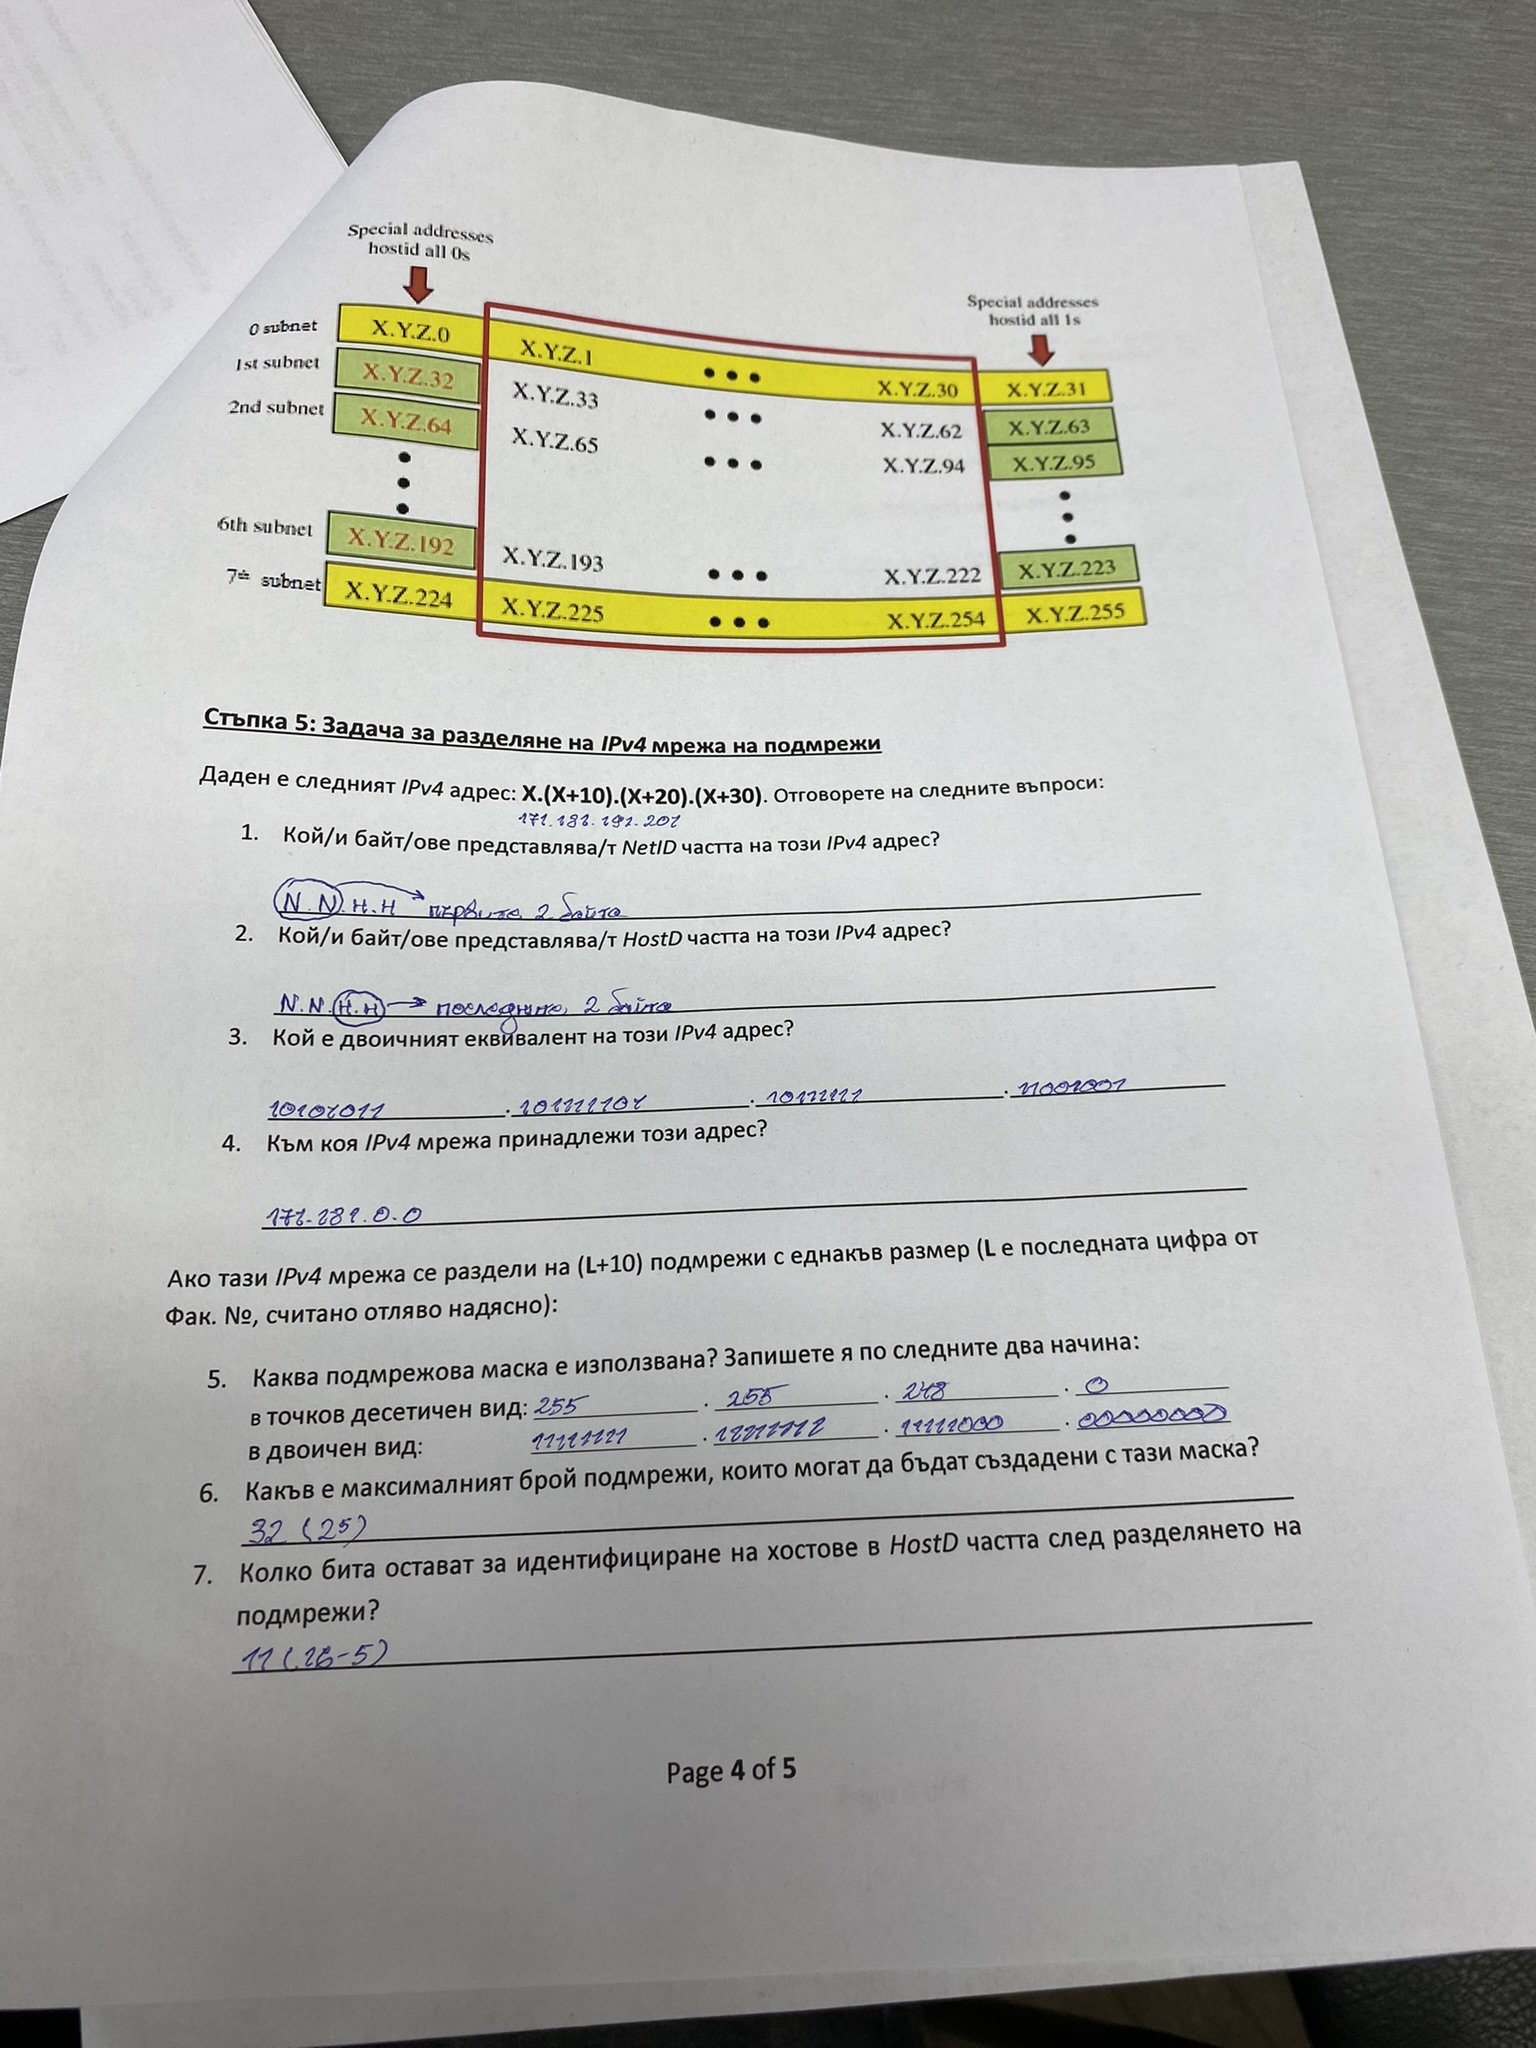 Special addresses
hostid all 0s
Special addresses
hostid all 1s
0 subnet X.Y.Z.0 X.Y.Z.1 ••• X.Y.Z.30 X.Y.Z.31
1st subnet X.Y.Z.32 X.Y.Z.33 ••• X.Y.Z.62 X.Y.Z.63
2nd subnet X.Y.Z.64 X.Y.Z.65 ••• X.Y.Z.94 X.Y.Z.95
6th subnet X.Y.Z.192 X.Y.Z.193 ••• X.Y.Z.222 X.Y.Z.223
7th subnet X.Y.Z.224 X.Y.Z.225 ••• X.Y.Z.254 X.Y.Z.255
Стъпка 5: Задача за разделяне на IPv4 мрежа на подмрежи
Даден е следният IPv4 адрес: X.(X+10).(X+20).(X+30). Отговорете на следните въпроси:
171.181.191.201
1. Кой/и байт/ове представлява/т NetID частта на този IPv4 адрес?
N.N.H.H първите 2 байта
2. Кой/и байт/ове представлява/т HostD частта на този IPv4 адрес?
N.N.H.H → последните 2 байта
3. Кой е двоичният еквивалент на този IPv4 адрес?
10101011 . 101111101 . 10111111 . 11001001
4. Към коя IPv4 мрежа принадлежи този адрес?
171.181.0.0
Ако тази IPv4 мрежа се раздели на (L+10) подмрежи с еднакъв размер (L е последната цифра от
Фак. №, считано отляво надясно):
5. Каква подмрежова маска е използвана? Запишете я по следните два начина:
в точков десетичен вид: 255 . 255 . 248 . 0
в двоичен вид: 11111111 . 11111111 . 11111000 . 00000000
6. Какъв е максималният брой подмрежи, които могат да бъдат създадени с тази маска?
32 (2⁵)
7. Колко бита остават за идентифициране на хостове в HostD частта след разделянето на
подмрежи?
11 (16-5)
Page 4 of 5